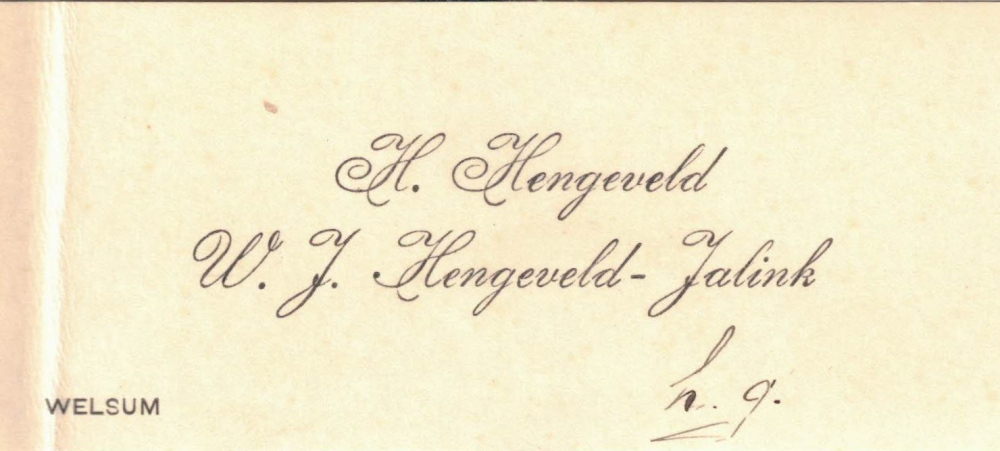 H. Hengeveld
W. J. Hengeveld-Jalink
h. g.
WELSUM